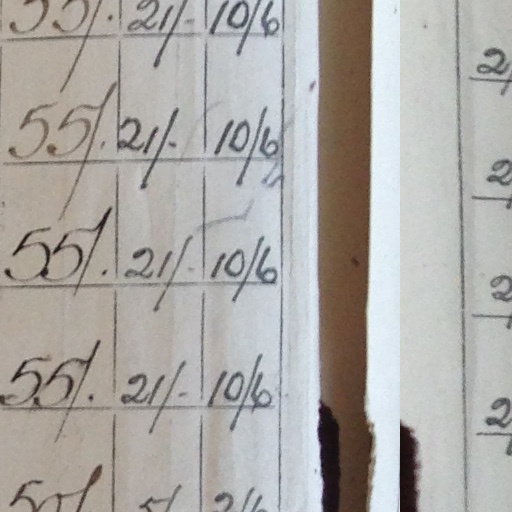 55/. 21/- 10/6
55/. 21/- 10/6 2
55/. 21/- 10/6 2
55/. 21/- 10/6 2
50/ 5/ 2/6 2